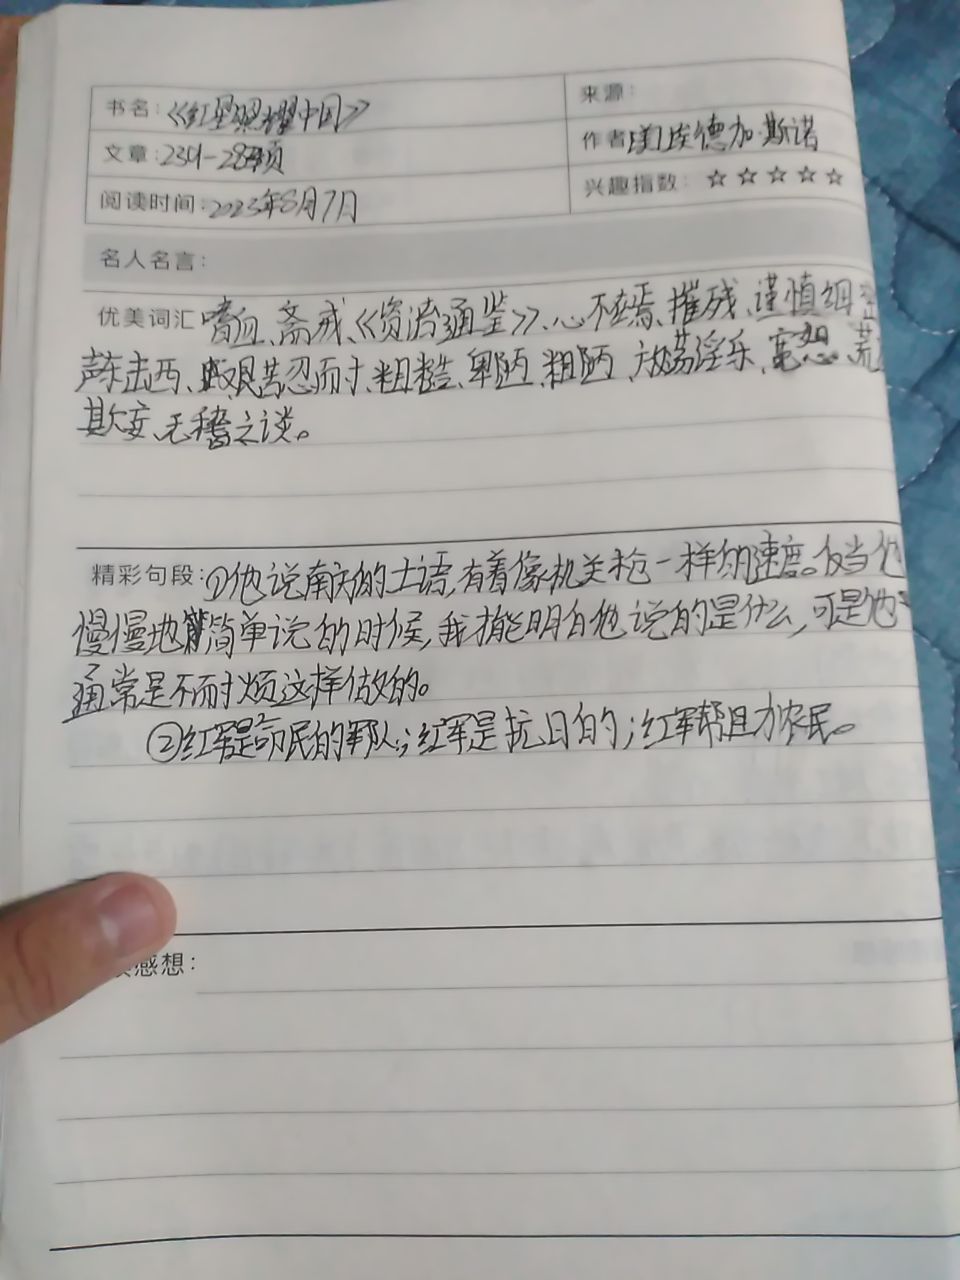 书名:《红星照耀中国》
来源:
文章:234-284页
作者:[美]埃德加·斯诺
阅读时间:2023年8月7日
兴趣指数:☆☆☆☆☆
名人名言:
优美词汇 嗜血、斋戒、《资治通鉴》、心不在焉、摧残、谨慎细
声东击西、艰苦忍耐、粗糙、卑陋、粗陋、放荡淫乐、荒
欺妄、无稽之谈。
精彩句段:①他说南方的土语,有着像机关枪一样的速度。仅当他
慢慢地简单说的时候,我才能明白他说的是什么,可是他
通常是不耐烦这样做的。
②红军是命民的军队;红军是抗日的;红军帮助农民。
感想: